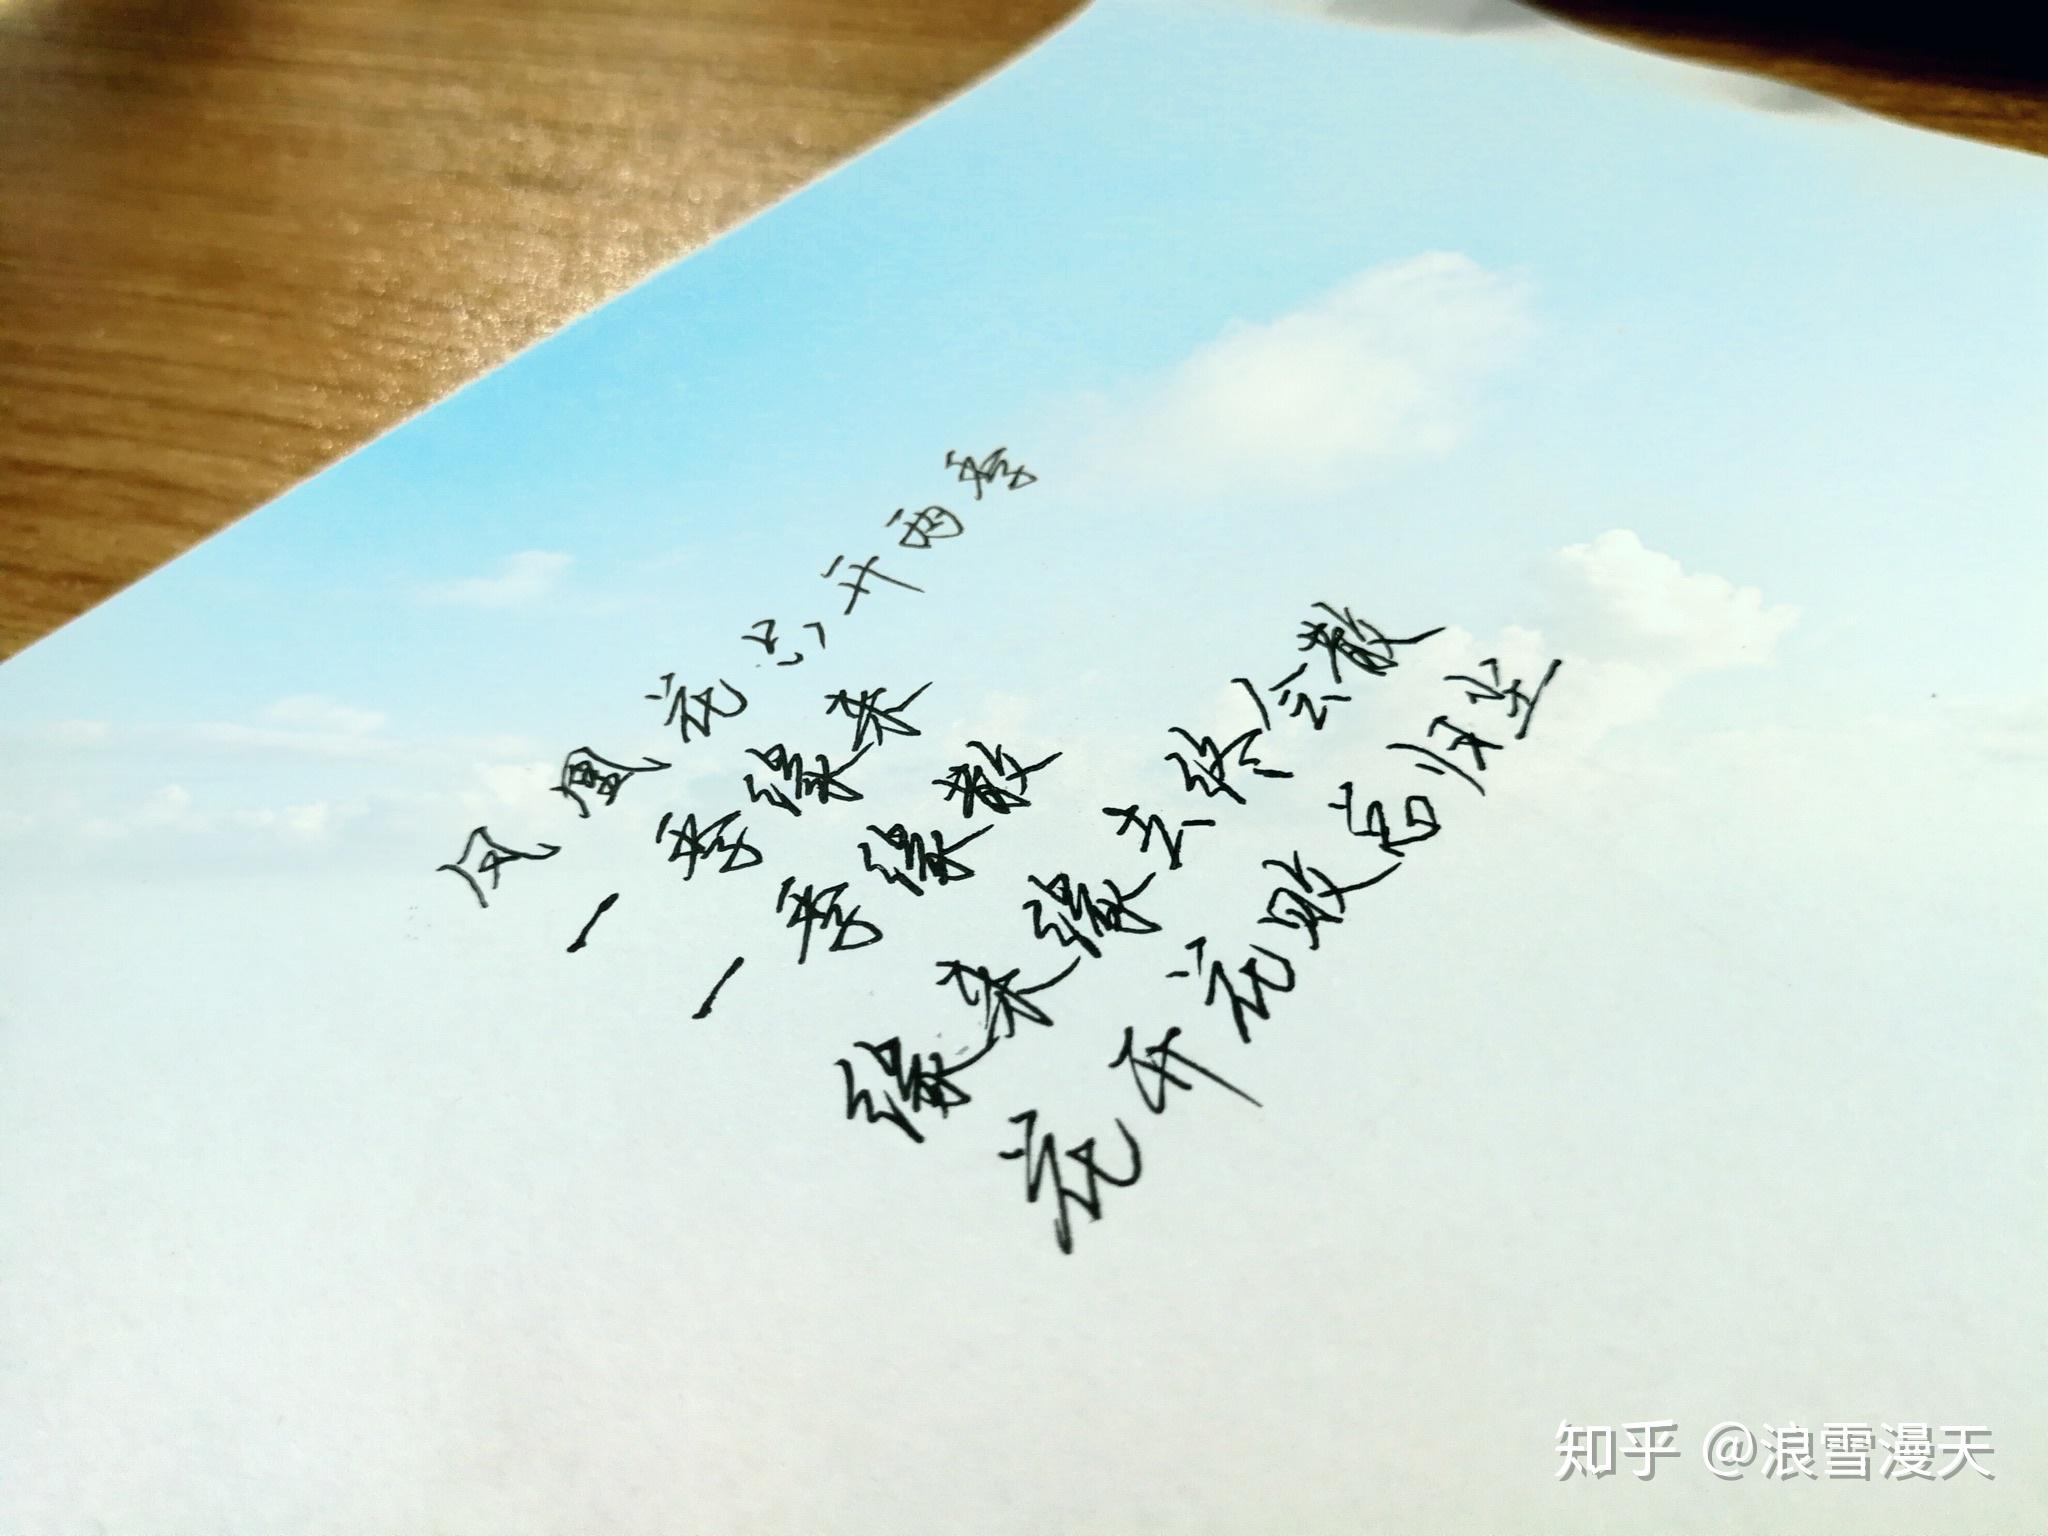 凤凰花只开两季
一季缘来
一季缘散
缘来缘去终会散
花开花败总归尘
知乎 @浪雪漫天